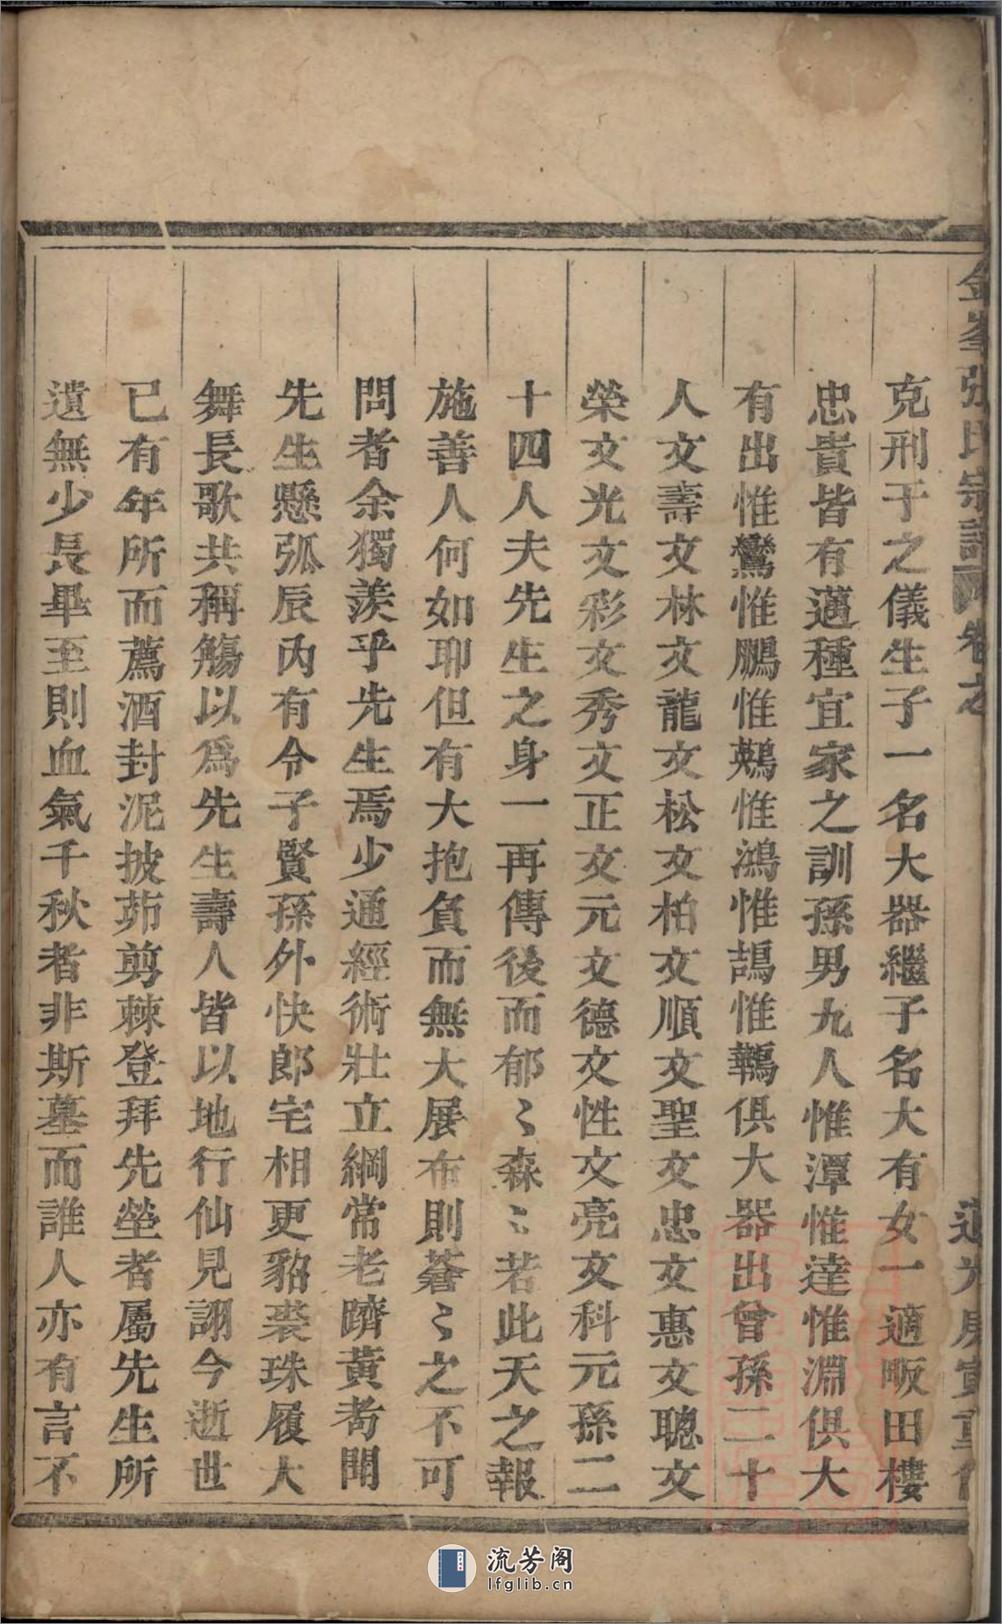 金峯張氏宗譜 卷之
道光庚寅重修
克刑于之儀生子一名大器繼子名大有女一適畈田樓
忠貴皆有邁種宜家之訓孫男九人惟潭惟達惟淵俱大
有出惟鸞惟鵬惟鷞惟鴻惟鵠惟鶚俱大器出曾孫二十
人文壽文林文龍文松文柏文順文聖文忠文惠文聰文
榮文光文彩文秀文正文元文德文性文亮文科元孫二
十四人夫先生之身一再傳後而郁〻森〻若此天之報
施善人何如耶但有大抱負而無大展布則蒼〻之不可
問者余獨羨乎先生焉少通經術壯立綱常老躋黃耇閒
先生懸弧辰內有令子賢孫外快郎宅相更貂裘珠履大
舞長歌共稱觴以爲先生壽人皆以地行仙見詡今逝世
已有年所而薦酒封泥披茆剪棘登拜先塋者屬先生所
遺無少長畢至則血氣千秋者非斯墓而誰人亦有言不
流芳阁
lfglib.cn